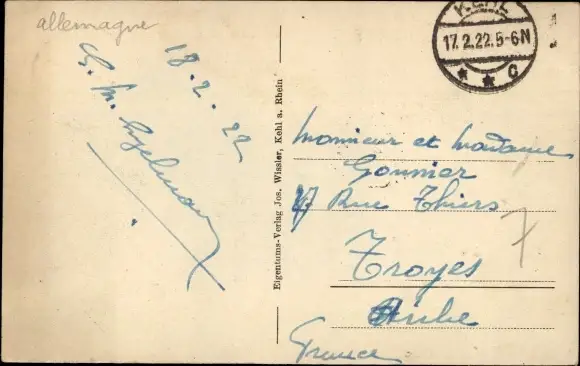 allemagne
18. 2. 22
G. M. Engelmann
Eigentums-Verlag Jos. Wissler, Kehl a. Rhein
KEHL
17.2.22.5-6N
* * c
Monsieur et Madame
Gonnier
17 Rue Thiers
Troyes
Aube
France